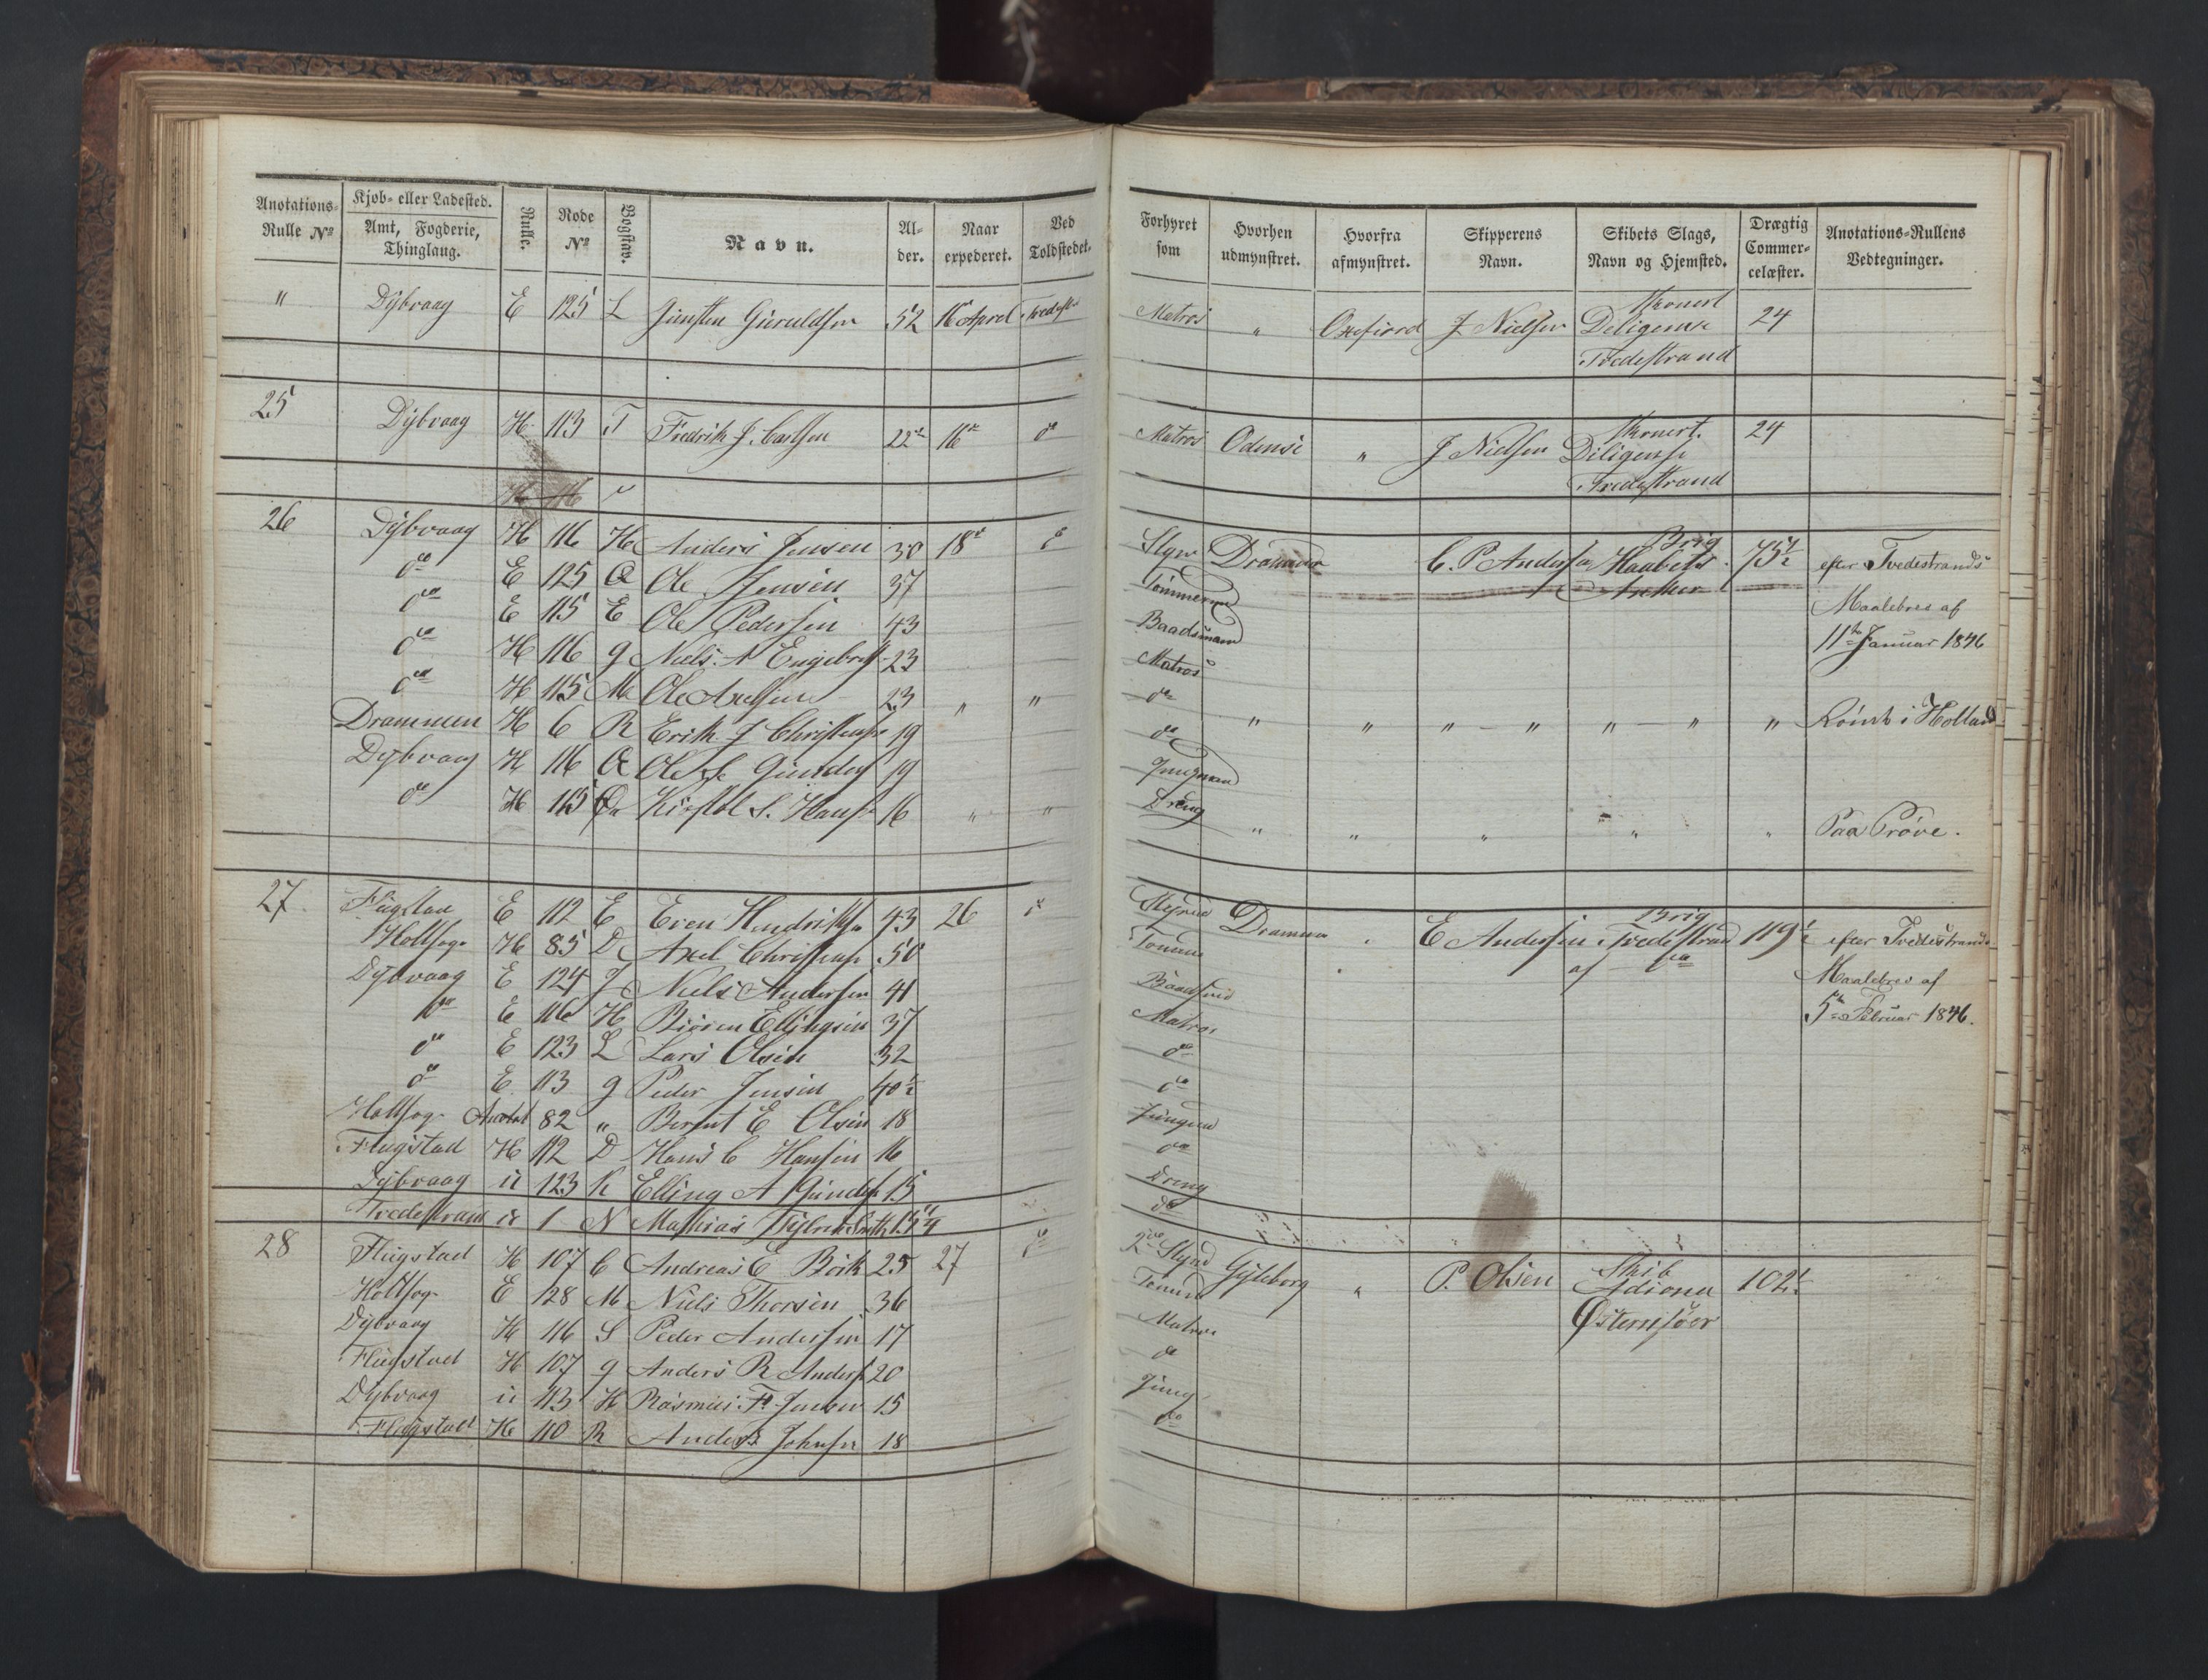 Anotations-Rulle No | Kjøb- eller Ladested. Amt, Fogderie, Thinglaug. | Rulle. | Rode No | Bogstav. | Navn. | Alder. | Naar expederet. | Ved Toldstedet. | Forhyret som | Hvorhen udmynstret. | Hvorfra afmynstret. | Skipperens Navn. | Skibets Slags, Navn og Hjemsted. | Drægtig Commercelæster. | Anotations-Rullens Vedtegninger.
" | Dybvaag | E | 125 | L | 52 | 16 April | Matros | " | J Nielsen | Tvedestrand | 24
25 | Dybvaag | H | 113 | T | Fredrik J. Carlsen | 22 | 16 | do | Matros | Odense | " | J Nielsen | Diligense Tvedestrand | 24
26 | Dybvaag | H | 116 | H | Anders Jensen | 30 | 18 | Styr | Drammen | C. P. Anders | Brig Haabets Anker | 75½ | efter Tvedestrands
do | E | 125 | Ole Jensen | 37 | Tømmerm
do | E | 115 | E | Ole Pedersen | 43 | Baadsmand | Maalebrev af
do | H | 116 | g | Niels A Engebret | 23 | Matros | 11te Januar 1846
do | H | 115 | M | Ole Axelsen | 23 | " | " | do
Drammen | H | 6 | R | Erik J Christens | 19 | do | " | " | " " | " " | " | i Holland
Dybvaag | H | 116 | Ole | 19 | Jungmand
do | H | 115 | S. Hans | 16 | " | " | Dreng | " | " | " | " | " | Paa Prøve.
27 | Flugstad | E | 112 | E | Even Hendriks | 43 | 26 | do | Styrm | Drammen | E Andersen | Brig Tvedestrand af do | 119½ | efter Tvedestrands
Holtsog | H | 85 | D | Axel Christens | 50 | Tømm | Maalebrev af
Dybvaag | E | 124 | J | Niels Andersen | 41 | Baadsm | 5te Februar 1846.
do | E | 116 | H | Biøren Ellingsen | 37 | Matros
do | E | 123 | L | Lars Olsen | 32 | do
do | E | 113 | g | Peder Jensen | 40½ | do
Holtsog | Anotat | 82 | " | Bernt E Olsen | 18 | Jungm
Flugstad | H | 112 | D | Hans C Hansen | 16 | do
Dybvaag | u | 123 | K | Elling A Gunders | 15 | Dreng
Tvedestrand | u | 1 | N | Mathias | 15 | do
28 | Flugstad | H | 107 | C | Andreas E | 25 | 27 | do | 2den Styrm | Gjøteborg | " | P. Olsen | Skib Østerrisøer | 102½
Holtsog | E | 128 | M | Niels Thorsen | 36 | Tømm
Dybvaag | H | 116 | S | Peder Andersen | 17 | Matros
Flugstad | H | 107 | g | Anders R Anders | 20 | do
Dybvaag | u | 113 | H | Rasmus F. Jensen | 15 | Jung
Flugstad | H | 110 | R | Anders Johnsen | 18 | do